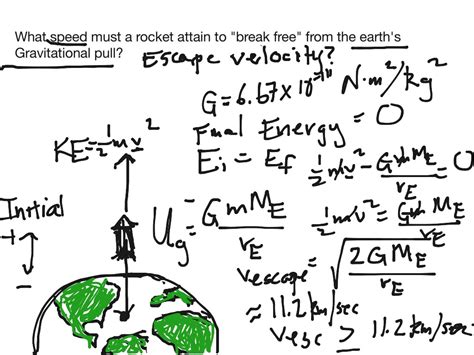 What speed must a rocket attain to "break free" from the earth's
Gravitational pull?
Escape velocity?
G = 6.67 x 10^-11 N·m²/kg²
Final Energy = 0
KE = 1/2 mv²
Ei = Ef 1/2 mv² - G m ME / rE = 0
Initial
+
-
Ug = G m ME / rE
1/2 mv² = G m ME / rE
vescape = √(2 G ME / rE)
≈ 11.2 km/sec
vesc > 11.2 km/sec